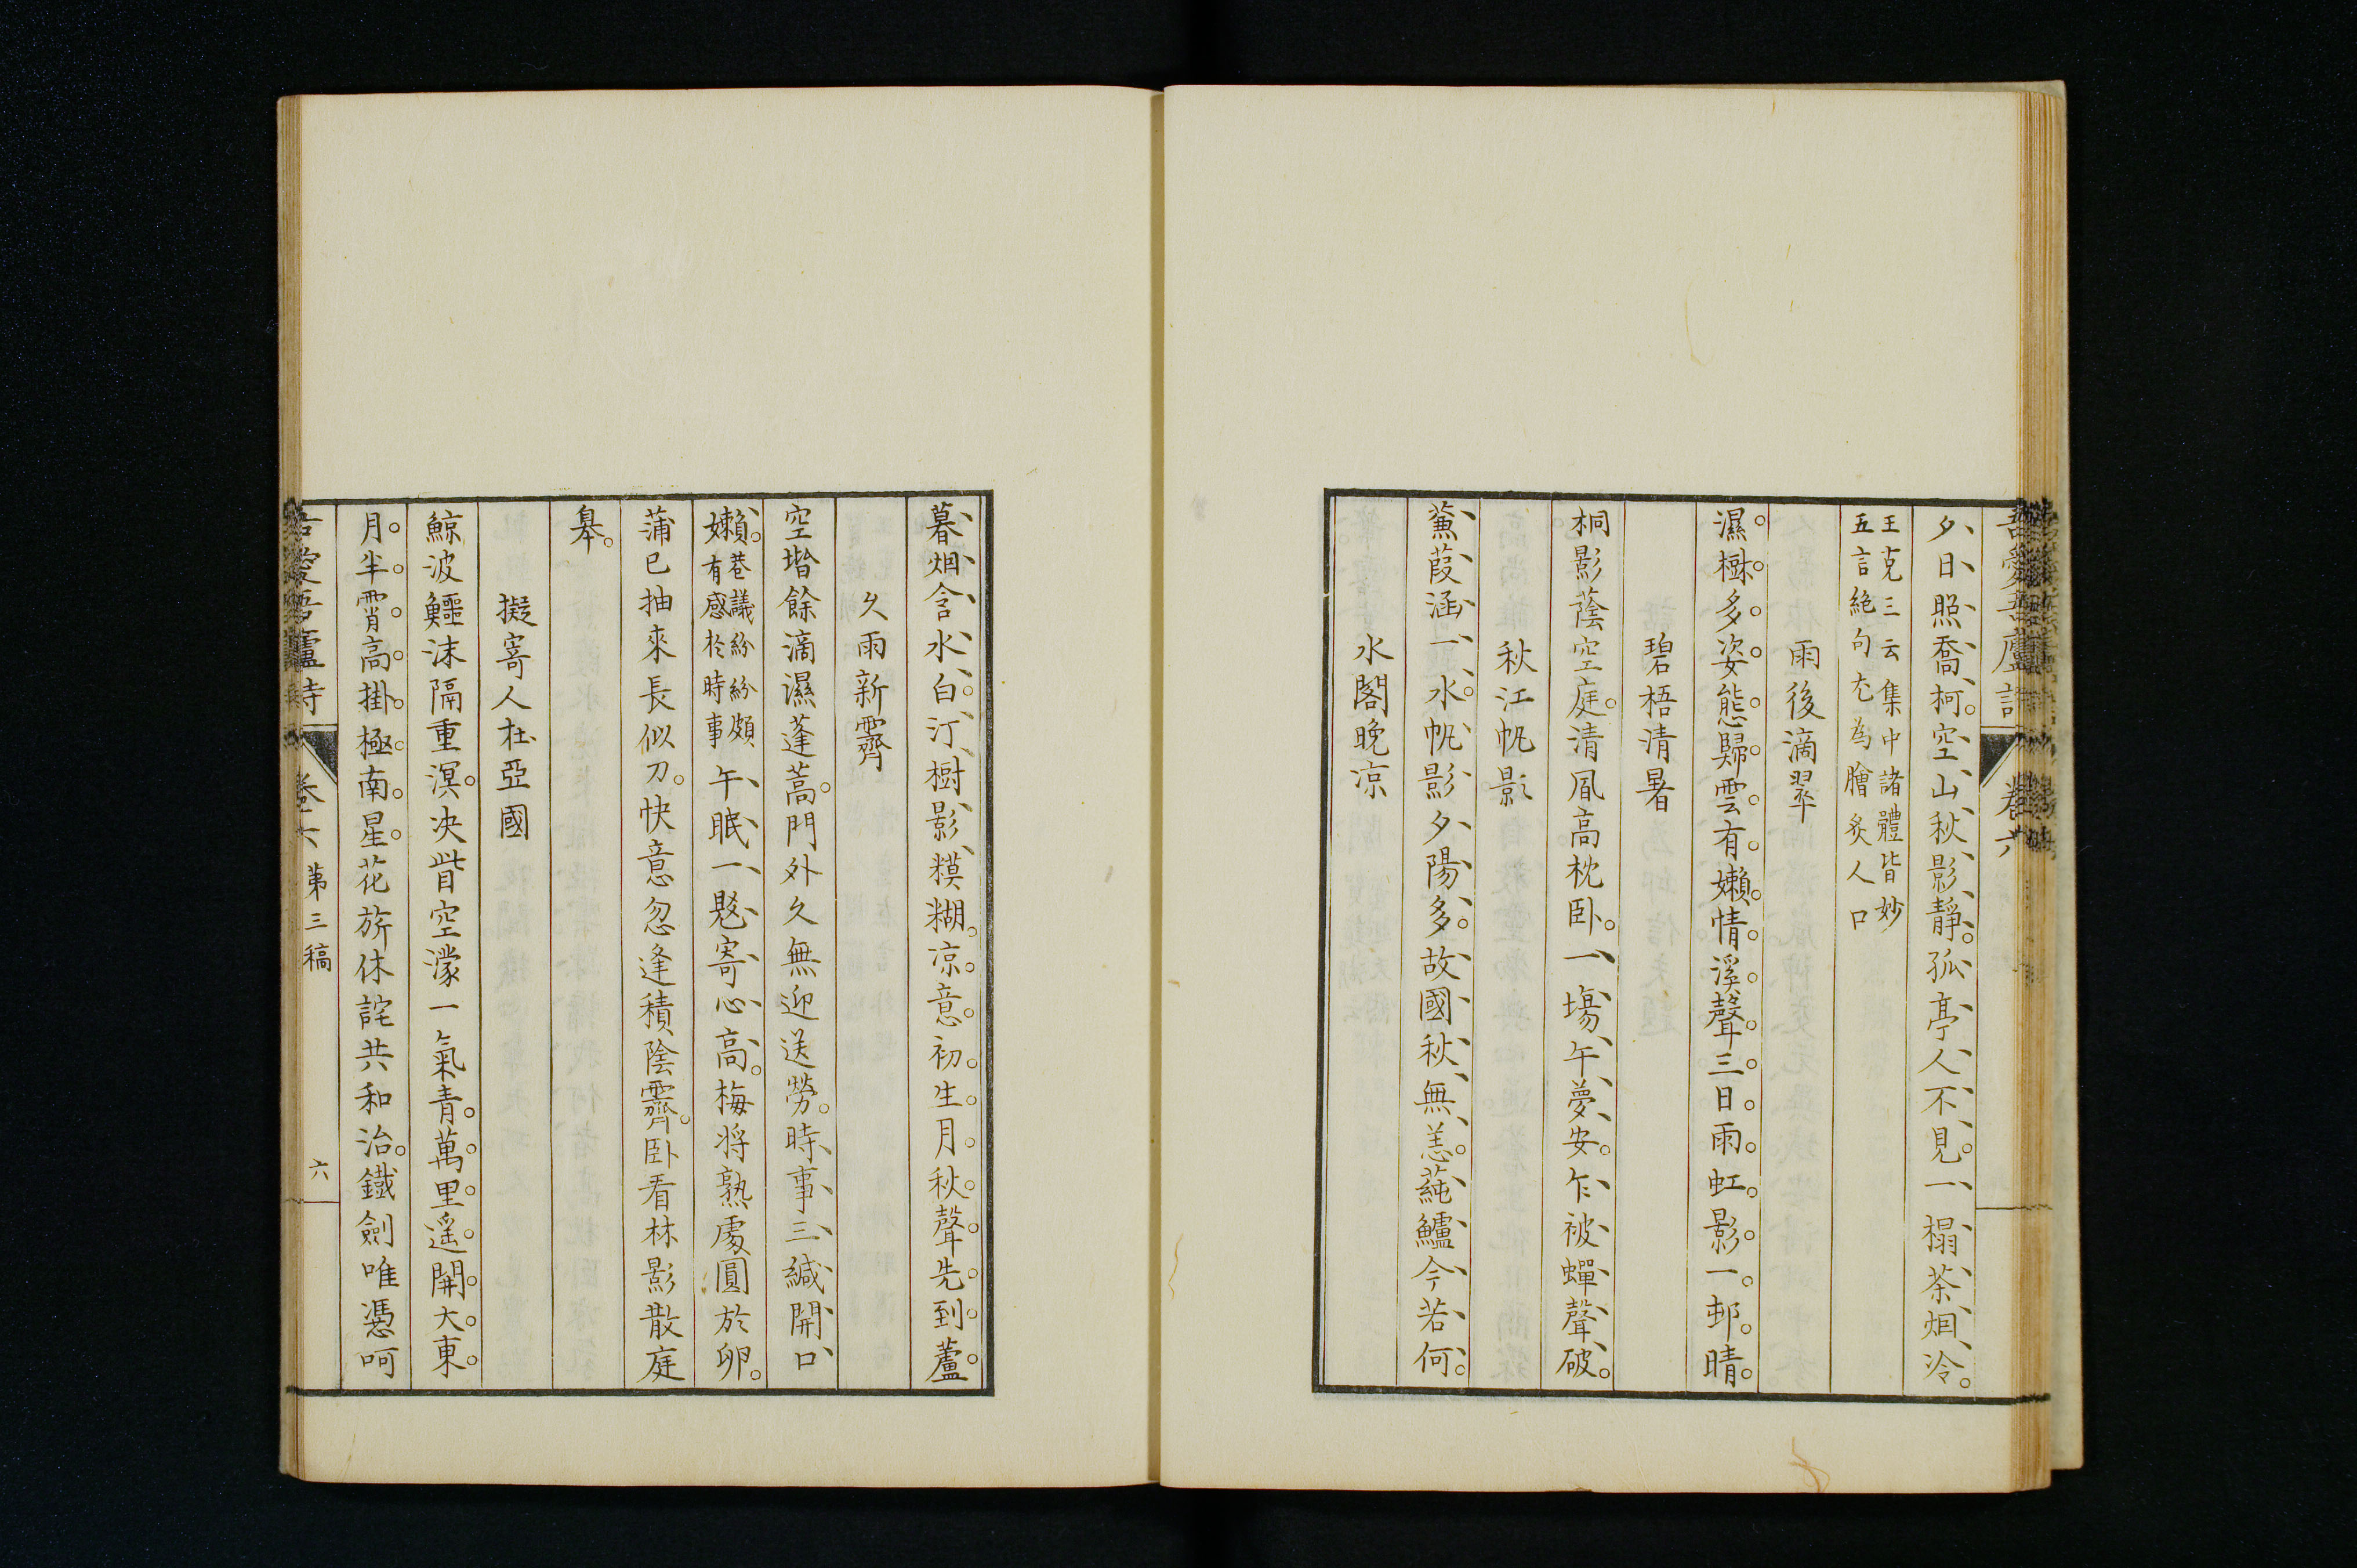 吾愛吾廬詩 卷六
夕日照喬柯空山秋影靜孤亭人不見一榻茶烟冷
王克三云集中諸體皆妙
五言絶句尤為膾炙人口
雨後滴翠
濕樹多姿態歸雲有嬾情溪聲三日雨虹影一邨晴
碧梧清暑
桐影蔭空庭清風高枕卧一塲午夢安乍被蟬聲破
秋江帆影
蒹葭涵一水帆影夕陽多故國秋無恙蓴鱸今若何
水閣晚凉
暮烟含水白汀樹影糢糊凉意初生月秋聲先到蘆
久雨新霽
空堦餘滴濕蓬蒿門外久無迎送勞時事三緘開口
嬾巷議紛紛頗有感於時事午眠一覺寄心高梅将熟處圓於卵
蒲已抽來長似刀快意忽逢積陰霽卧看林影散庭
皋
擬寄人在亞國
鯨波鱷沫隔重溟决眥空濛一氣青萬里遥開大東
月半宵高掛極南星花旂休詫共和治鐵劍唯憑呵
吾愛吾廬詩 卷六 第三稿 六